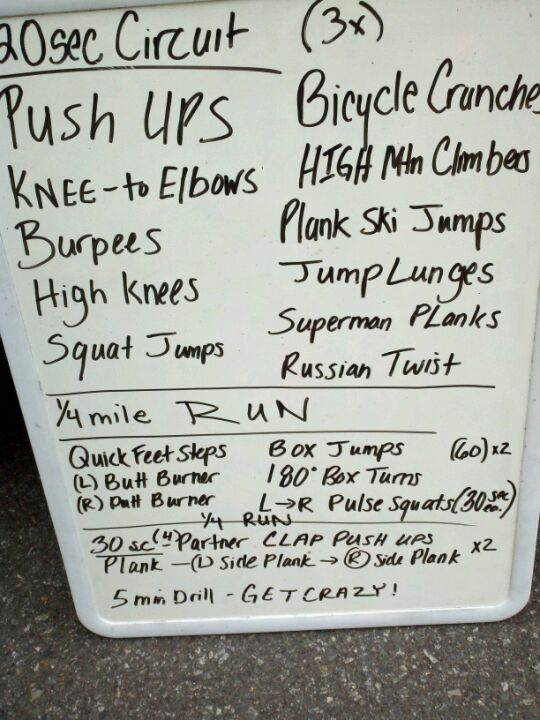 20sec Circuit (3x)
Push UPS
KNEE-to Elbows
Burpees
High Knees
Squat Jumps
Bicycle Crunches
HIGH Mtn Climbers
Plank Ski Jumps
Jump Lunges
Superman PLanks
Russian Twist
1/4 mile RUN
Quick Feet Steps
(L) Butt Burner
(R) Butt Burner
Box Jumps (60) x2
180° Box Turns
L→R Pulse Squats (30 sec ea.)
1/4 RUN
30 sc (4) Partner CLAP PUSH UPS
Plank - (L) Side Plank → (R) Side Plank x2
5 min Drill - GET CRAZY!